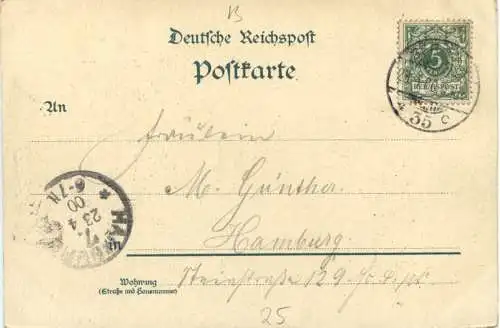 B
Deutsche Reichspost
Postkarte
5
REICHSPOST
35
An
Fräulein
M. Günther
HAMBURG
23 4
00
6-7 N
in
Hamburg
Wohnung
(Straße und Hausnummer)
Steinstraße 129
25